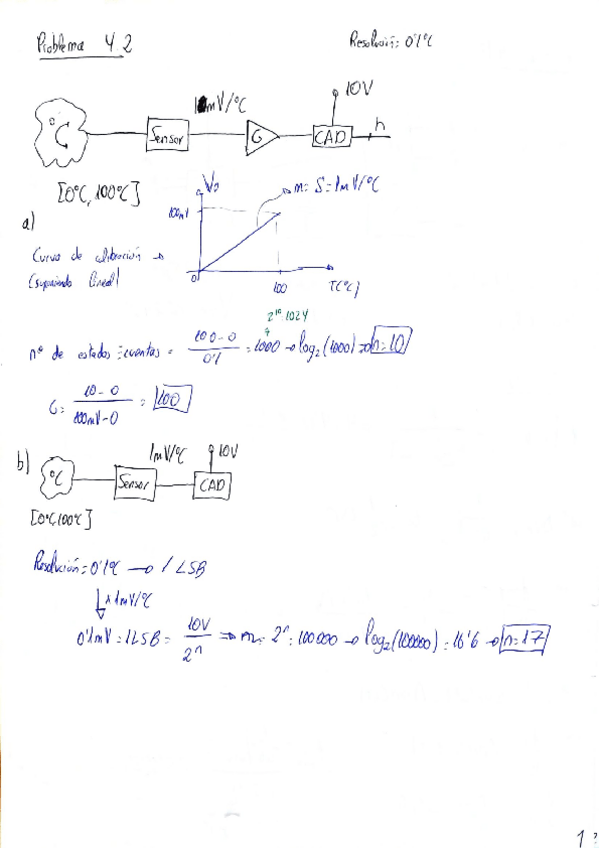 Problema 4.2
Resolución: 0'1ºC
10V
1 mV/ºC
ºC
Sensor
G
CAD
n
[0ºC, 100ºC]
a)
Vo
m = S = 1mV/ºC
100mV
Curva de calibración →
(suponiendo lineal)
0
100
T(ºC)
2^10 1024
nº de estados = cuentas = (100-0)/0'1 = 1000 → log2(1000) → n=10
G = (10-0)/(100mV-0) = 100
b)
1mV/ºC
10V
ºC
Sensor
CAD
[0ºC,100ºC]
Resolución = 0'1ºC → 1 LSB
x 1mV/ºC
0'1mV = 1LSB = 10V/2^n ⇒ m = 2^n = 100000 → log2(100000) = 16'6 → n=17
1